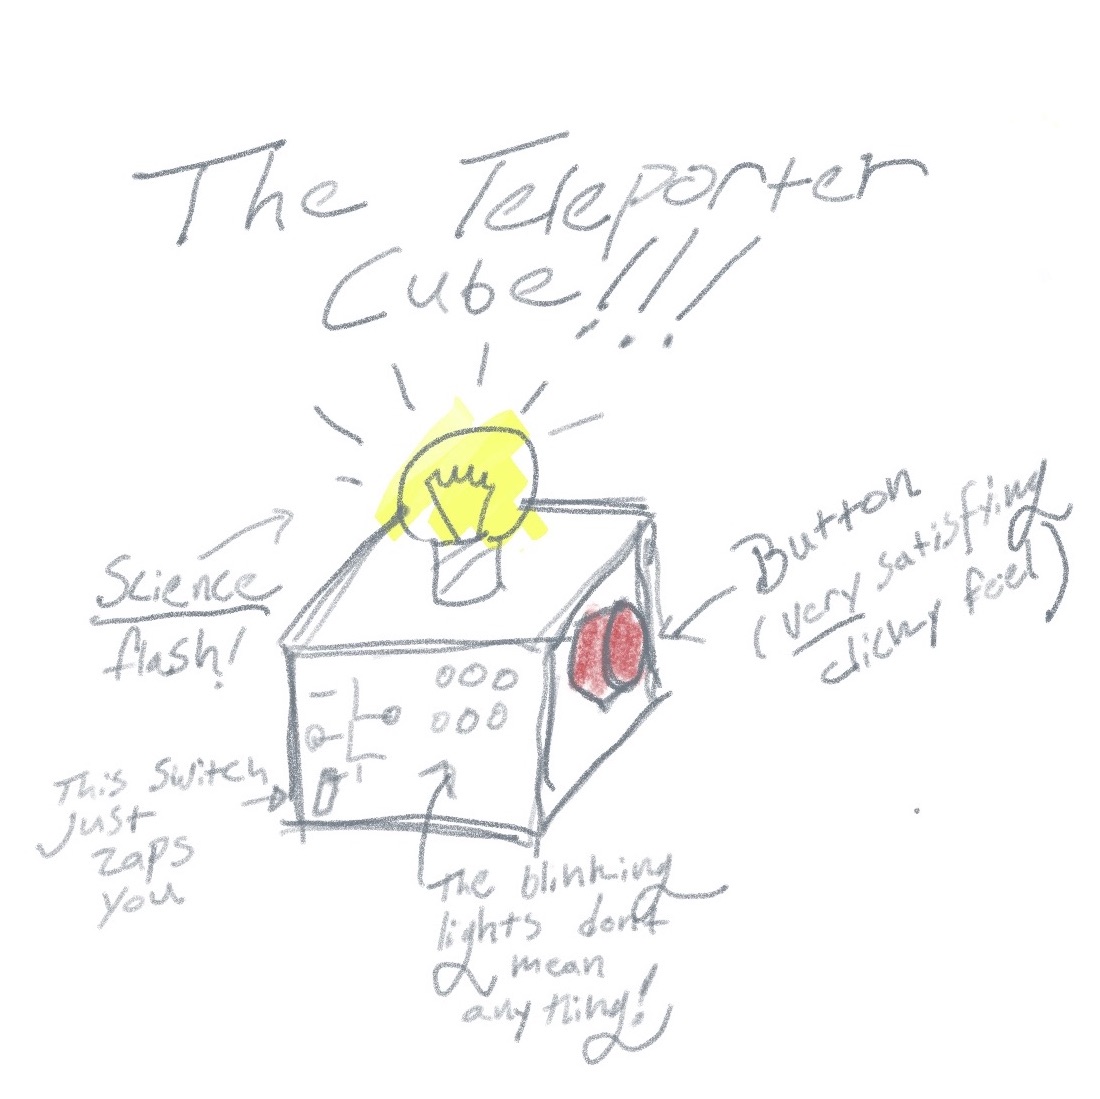 The Teleporter
Cube!!!
Science
flash!
Button
(very satisfying
clicky feel)
This switch
just
zaps
you
The blinking
lights don't
mean
anything!